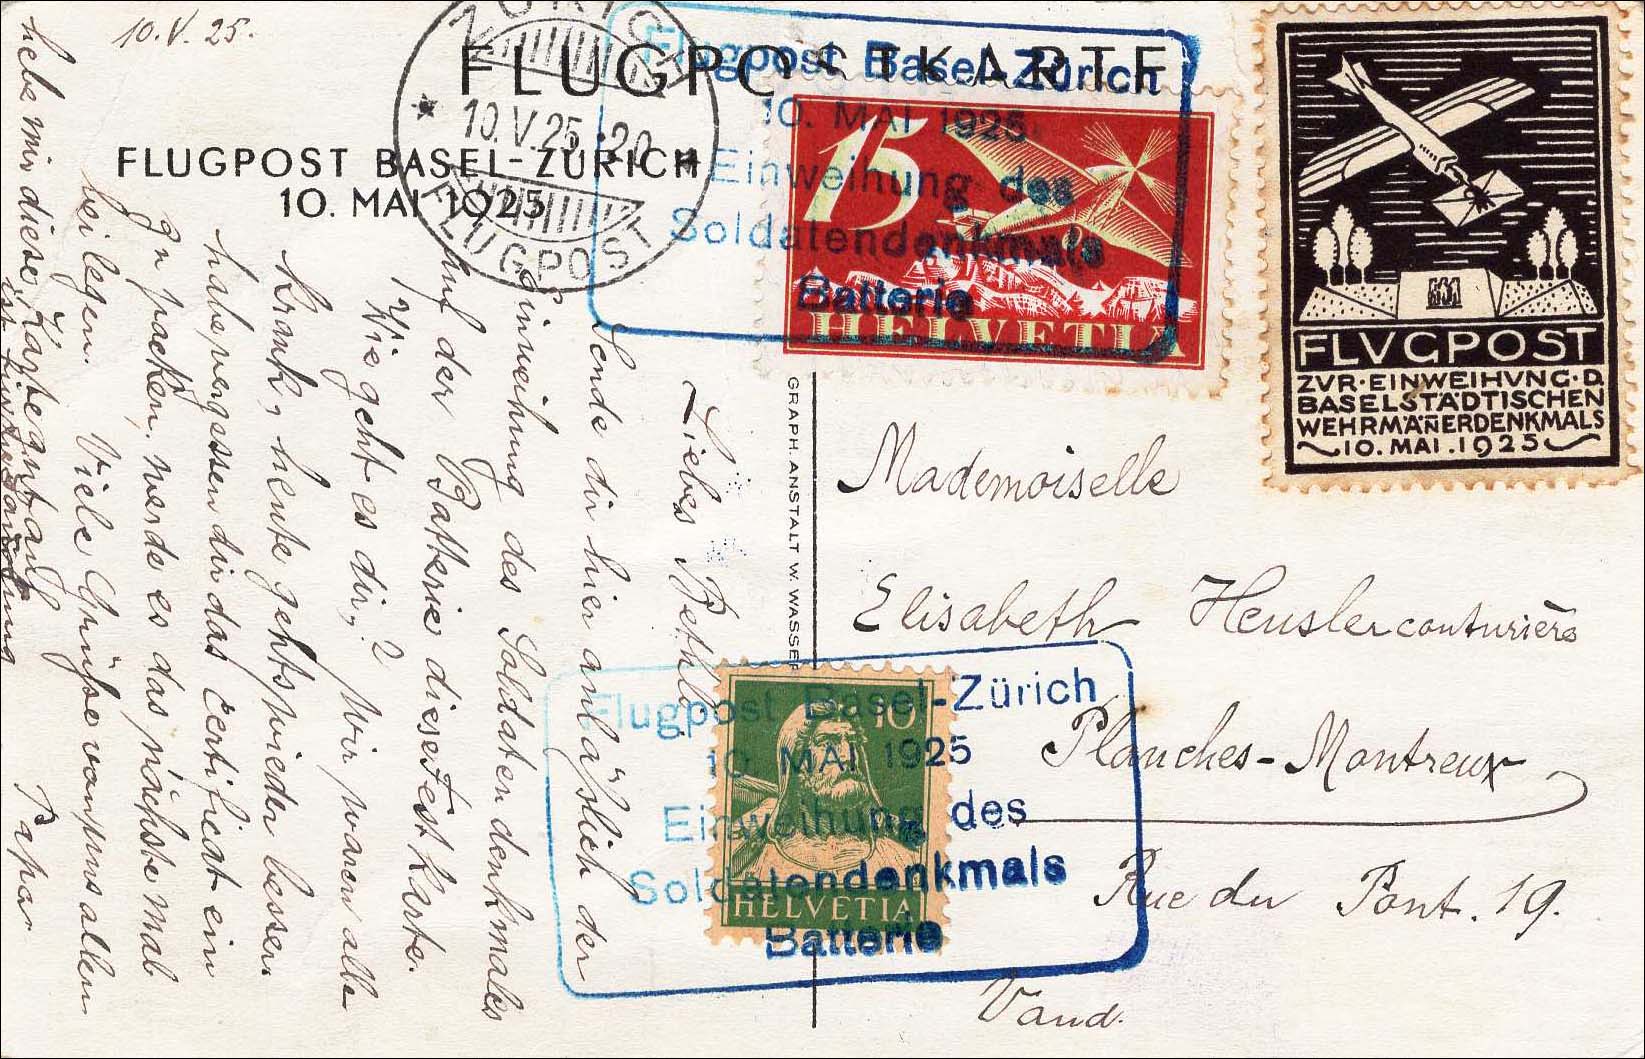 10. V. 25.
FLUGPOSTKARTE
FLUGPOST BASEL-ZÜRICH
10. MAI 1925
ZÜRICH
10.V.25.-20
FLUGPOST
Flugpost Basel-Zürich
10. MAI 1925
Einweihung des
Soldatendenkmals
Batterie
15
HELVETIA
FLVGPOST
ZVR·EINWEIHVNG·D.
BASELSTÄDTISCHEN
WEHRMÄÑERDENKMALS
10. MAI. 1925
GRAPH. ANSTALT W. WASSER
Liebes Bethli.
Sende dir hier anläßlich der
Einweihung des Soldatendenkmales
auf der Batterie diese Festkarte.
Wie geht es dir? Wir waren alle
krank, heute gehts wieder besser.
habe vergessen dir das Certificat ein
zu packen, werde es das nächste mal
beilegen. Viele Grüße von uns allen
Papa.
hebe mir diese Karte gut auf
ist
Mademoiselle
Elisabeth Heusler couturière
Planches-Montreux
Rue du Pont. 19.
Vaud.
Flugpost Basel-Zürich
10. MAI 1925
Einweihung des
Soldatendenkmals
Batterie
10
HELVETIA